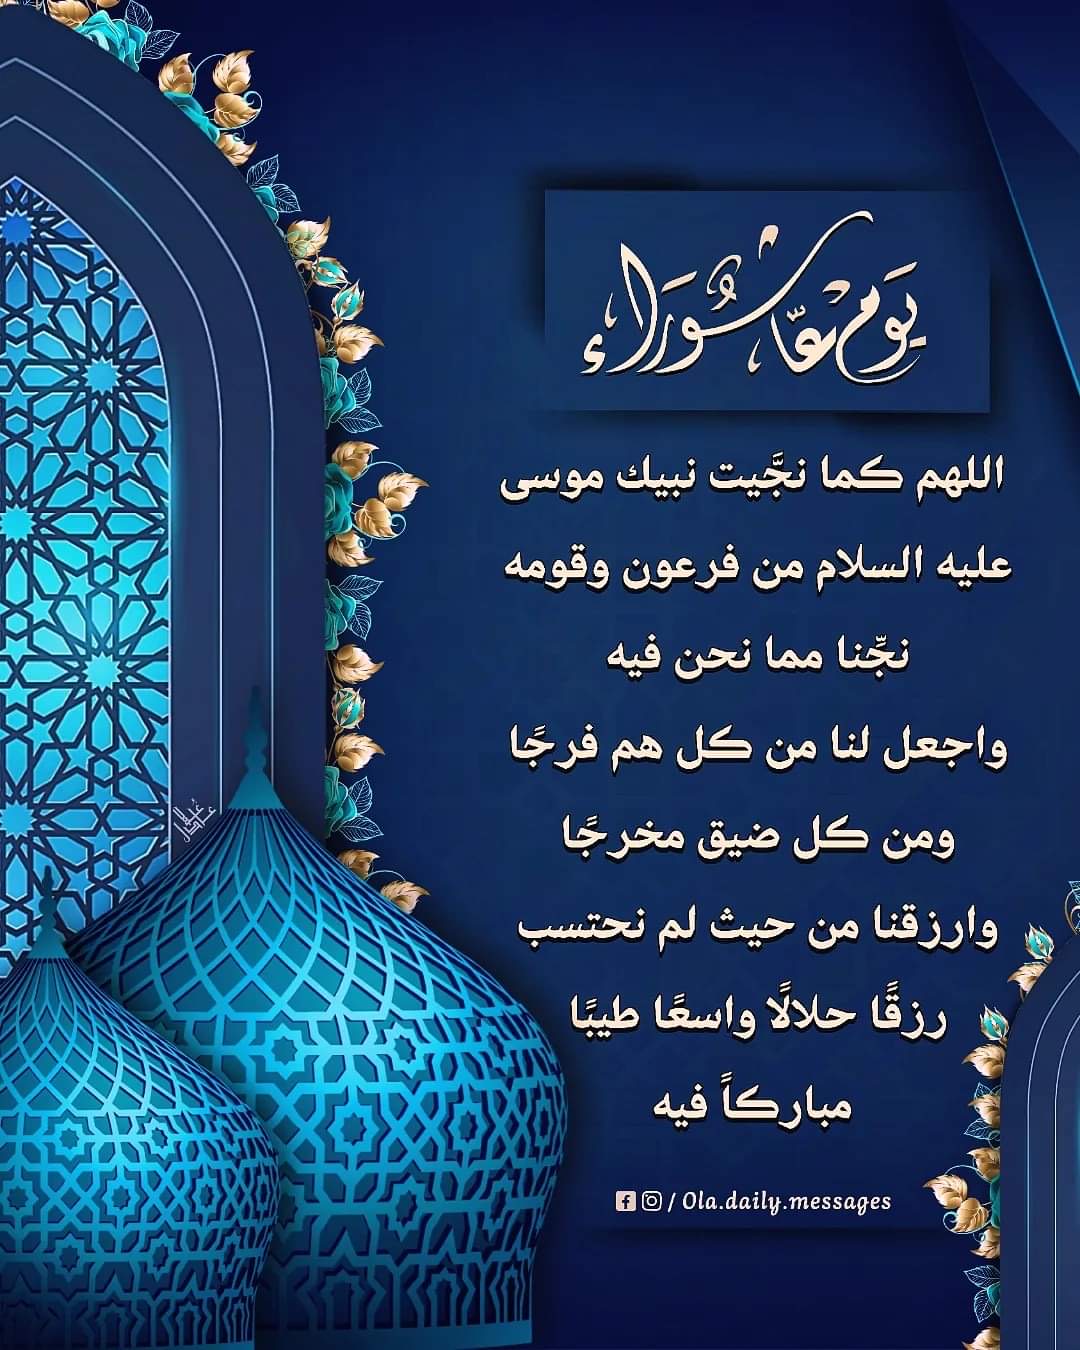 يَوم عَاشُورَاء
اللهم كما نجَّيت نبيك موسى
عليه السلام من فرعون وقومه
نجِّنا مما نحن فيه
واجعل لنا من كل هم فرجًا
ومن كل ضيق مخرجًا
وارزقنا من حيث لم نحتسب
رزقًا حلالًا واسعًا طيبًا
مباركاً فيه
/ Ola.daily.messages